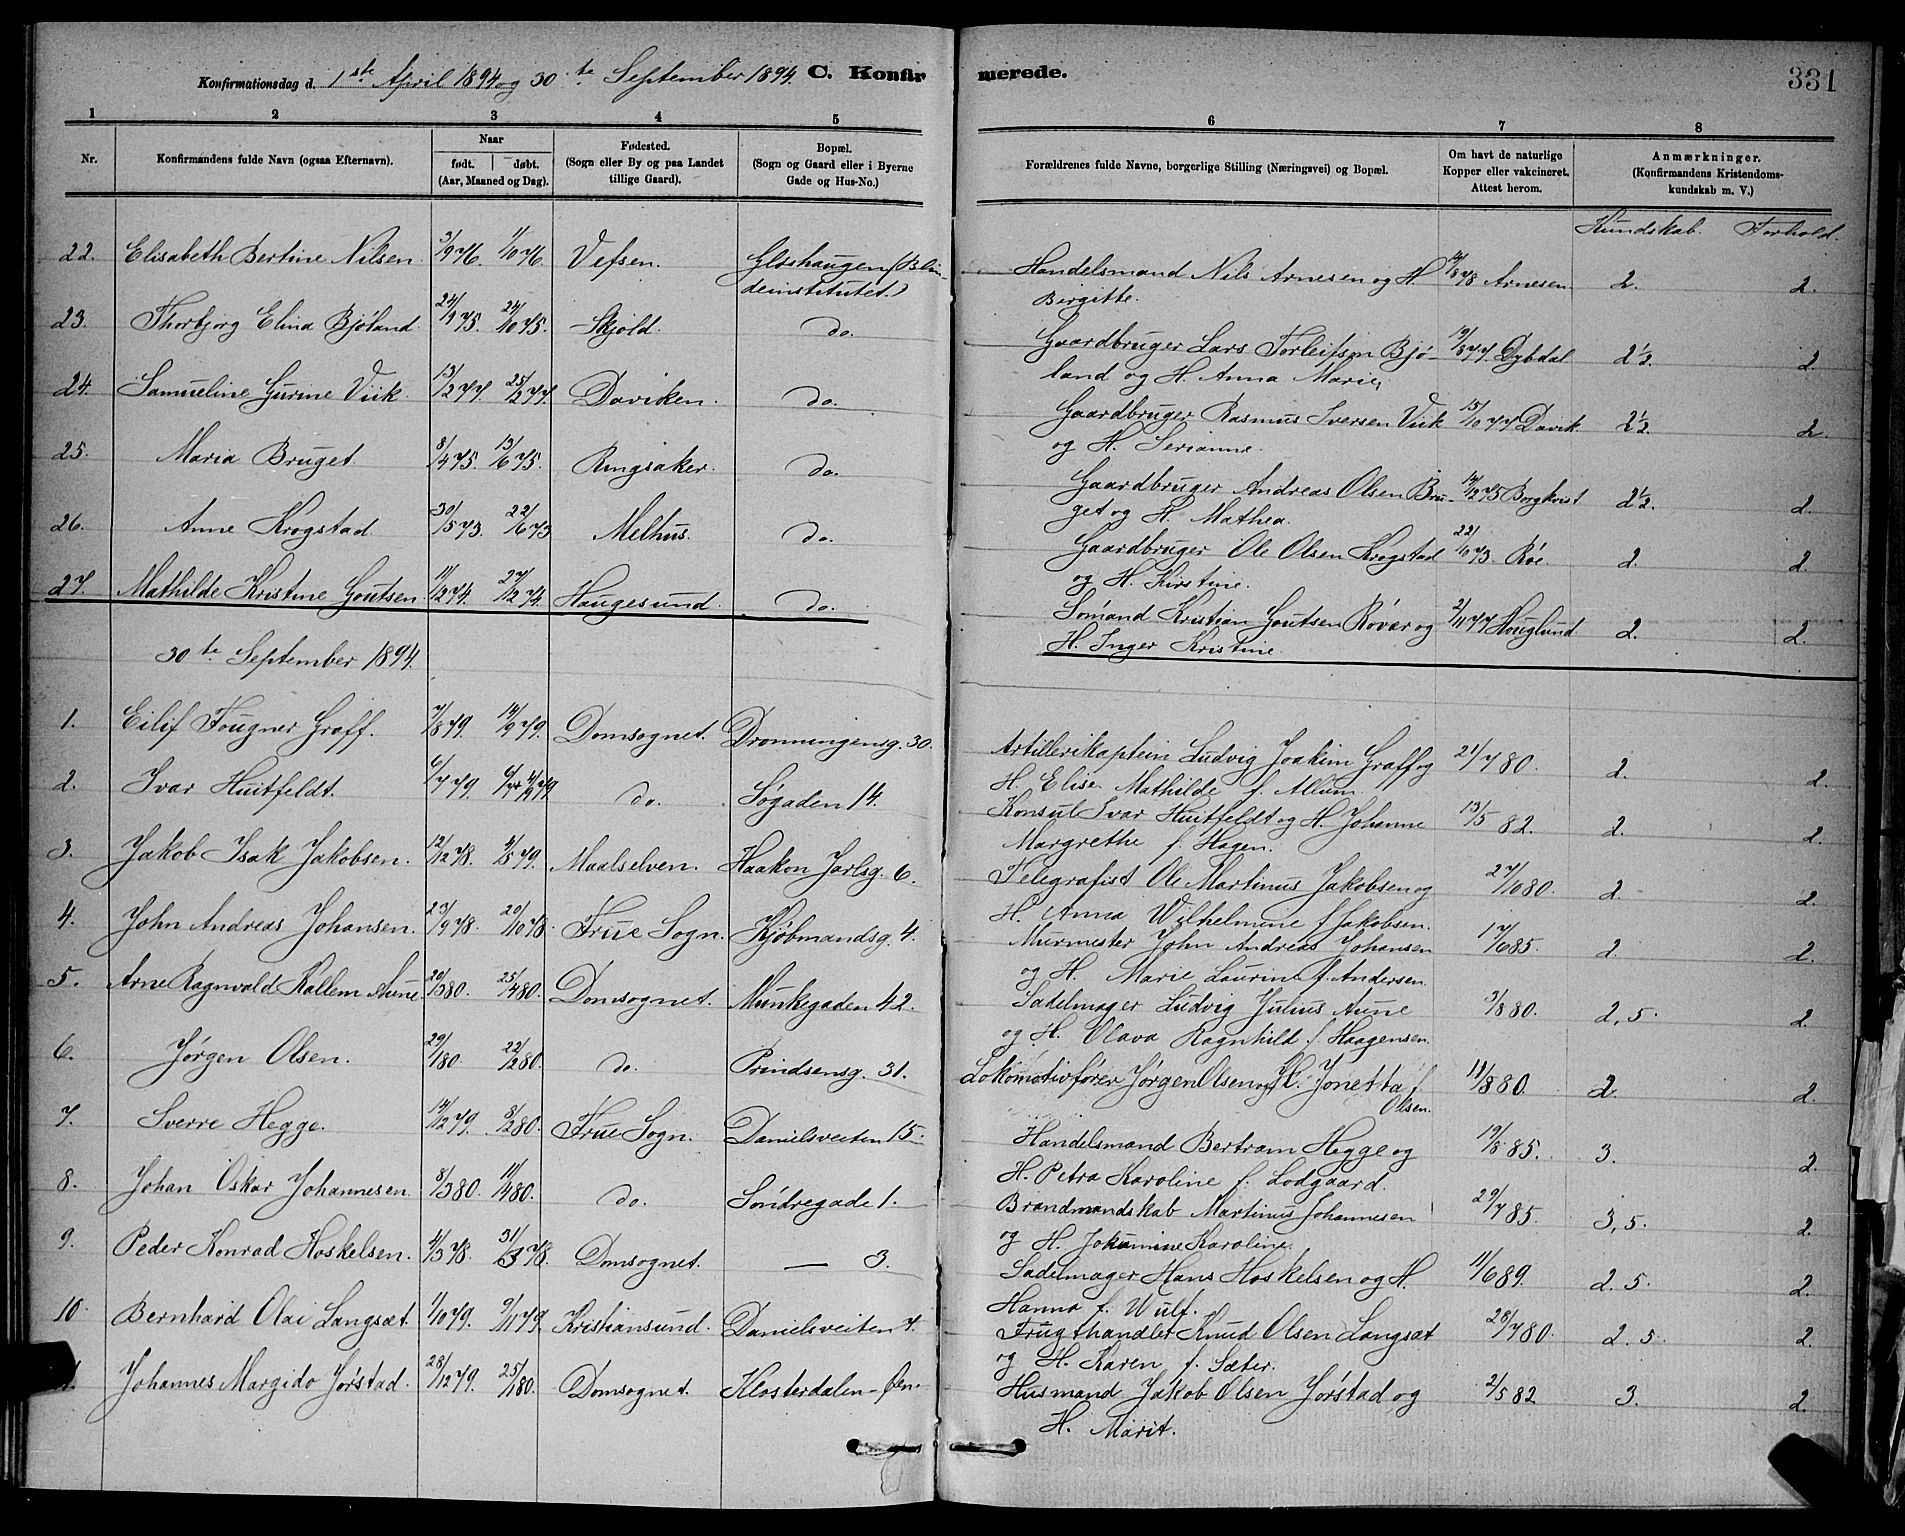 Konfirmationsdag d. 1ste April 1894 og 30te September 1894. C. Konfirmerede. 331
1 2 3 4 5 6 7 8
Nr. Konfirmandens fulde Navn (ogsaa Efternavn). Naar født. døbt. (Aar, Maaned og Dag). Fødested. (Sogn eller By og paa Landet tillige Gaard). Bopæl. (Sogn og Gaard eller i Byerne Gade og Hus-No.) Forældrenes fulde Navne, borgerlige Stilling (Næringsvei) og Bopæl. Om havt de naturlige Kopper eller vakcineret. Attest herom. Anmærkninger. (Konfirmandens Kristendomskundskab m. V.)
Kundskab. Forhold.
22. Elisabeth Bertine Nilsen. 3/9 76. 1/10 76. Vefsen. Gløshaugen (Blindeinstitutet.) Handelsmand Nils Arnesen og H. Arnesen 2. 2.
Birgitte.
23. Thorbjorg Elina Bjøland. 24/9 75. 24/10 75. Skjold. do. Gaardbruger Lars Torleifsen Bjø- 19/8 77 Dybdal 2½. 2.
land og H. Anna Marie.
24. Samueline Gurine Viik. 13/2 77. 25/2 77. Daviken. do. Gaardbruger Rasmus Iversen Viik 15/10 77 Davik. 2½. 2.
og H. Serianne.
25. Maria Bruget. 8/4 75. 13/6 75. Ringsaker. do. Gaardbruger Andreas Olsen Bru- 14/12 75 Borgkvist 2½. 2.
get og H. Mathea.
26. Anne Krogstad 30/5 73. 22/6 73 Melhus. do. Gaardbruger Ole Olsen Krogstad 22/10 73. Röe. 2. 2.
og H. Kirstine.
27. Mathilde Kristine Goutsen. 11/12 74. 27/12 74. Haugesund. do. Sömand Kristian Goutsen Rövar og 2/11 77 Houglund 2. 2.
H. Inger Kristine.
30te September 1894.
1. Eilif Fougner Graff. 7/8 79. 14/9 79. Domsognet. Dronningensg. 30. Artillerikaptein Ludvig Joakim Graff og 21/7 80. 2. 2.
H. Elise Mathilde f. Allum.
2. Ivar Huitfeldt. 6/7 79. do. Søgaden 14. Konsul Ivar Huitfeldt og H. Johanne 13/5 82. 2. 2.
Margrethe f. Hagen.
3. Jakob Isak Jakobsen. 12/12 78. 4/5 79. Maalselven. Haakon Jarlsg. 6. Telegrafist Ole Martinus Jakobsen og 27/10 80. 2. 2.
H. Anna Wilhelmine f. Jakobsen.
4. John Andreas Johansen. 23/9 78. 20/10 78. Frue Sogn. Kjøbmandsg. 4. Murmester John Andreas Johansen 17/6 85. 2. 2.
og H. Marie Laurine f. Andersen.
5. Arne Ragnvald Kallem Aune 20/3 80. 25/4 80. Domsognet. Munkegaden 42. Sadelmager Ludvig Julius Aune 3/8 80. 2,5. 2.
og H. Olava Ragnhild f. Haagensen.
6. Jørgen Olsen. 29/1 80. 22/2 80. do. Prindsensg. 31. Lokomotivfører Jørgen Olsen og H. Jonetta f. 11/8 80. 2. 2.
Olsen.
7. Sverre Hegge. 14/12 79. 8/2 80. Frue Sogn. Danielsveiten 15. Handelsmand Bertram Hegge og 19/8 85. 3. 2.
H. Petra Karoline f. Lodgaard.
8. Johan Oskar Johannesen. 8/3 80. 11/4 80. do. Søndregade 1. Brandmandskab Martinus Johannesen 29/7 85. 3,5. 2.
og H. Jokumine Karoline.
9. Peder Konrad Hoskelsen. 4/3 78. 31/3 78. Domsognet. — 3. Sadelmager Hans Hoskelsen og H. 11/6 89. 2.5. 2.
Hanna f. Wulf.
10. Bernhard Olai Langsæt. 1/10 79. 9/11 79. Kristiansund. Danielsveiten 7. Frugthandler Knud Olsen Langsæt 28/7 80. 2.5. 2.
og H. Karen f. Sæter.
Johannes Margido Jørstad. 28/12 79. 25/1 80. Domsognet. Klosterdalen - Øen. Husmand Jakob Olsen Jørstad og 2/5 82 3. 2.
H. Marit.